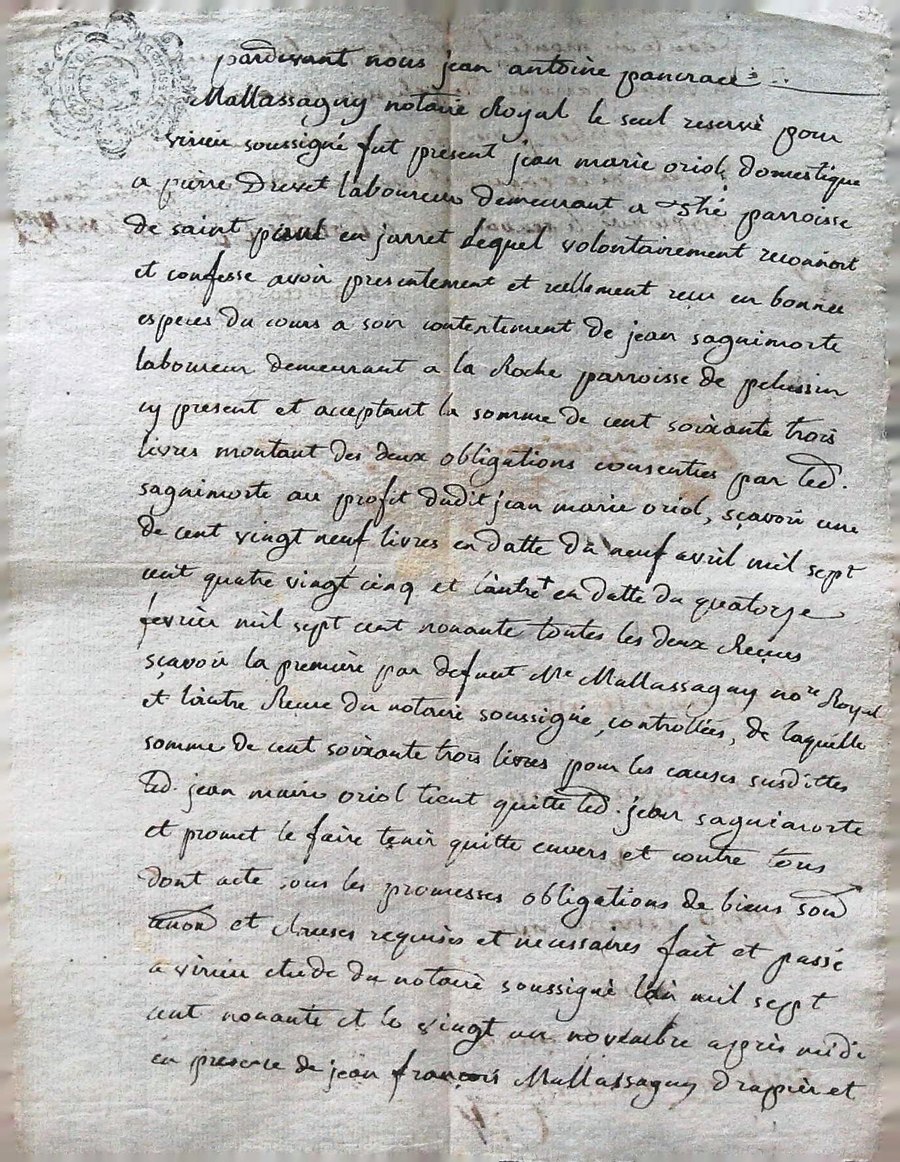 pardevant nous jean antoine pancrace
Mallassagny notaire Royal le seul reservé pour
virieu soussigné fut present jean marie oriol domestique
a pierre Drevet laboureur demeurant a parroisse
de saint paul en jarret lequel volontairement reconnoit
et confesse avoir presentement et reellement reçu en bonnes
especes du cours a son contentement de jean saguimorte
laboureur demeurant a la Roche parroisse de pelussin
cy present et acceptant la somme de cent soixante trois
livres montant des deux obligations consenties par led.
saguimorte au profit dudit jean marie oriol, sçavoir une
de cent vingt neuf livres en datte du neuf avril mil sept
cent quatre vingt cinq et l'autre en datte du quatorze
fevrier mil sept cent nonante toutes les deux Reçues
sçavoir la première par defunt Me Mallassagny nore Royal
et l'autre Reçue du notaire soussigné, controllées, de laquelle
somme de cent soixante trois livres pour les causes susdittes
led. jean marie oriol tient quitte led. jean saguimorte
et promet le faire tenir quitte envers et contre tous
dont acte sous les promesses obligations de biens soud
renond et clauses requises et necessaires fait et passé
a virieu etude du notaire soussigné l'an mil sept
cent nonante et le vingt un novembre après midi
en presence de jean françois Mallassagny drapier et